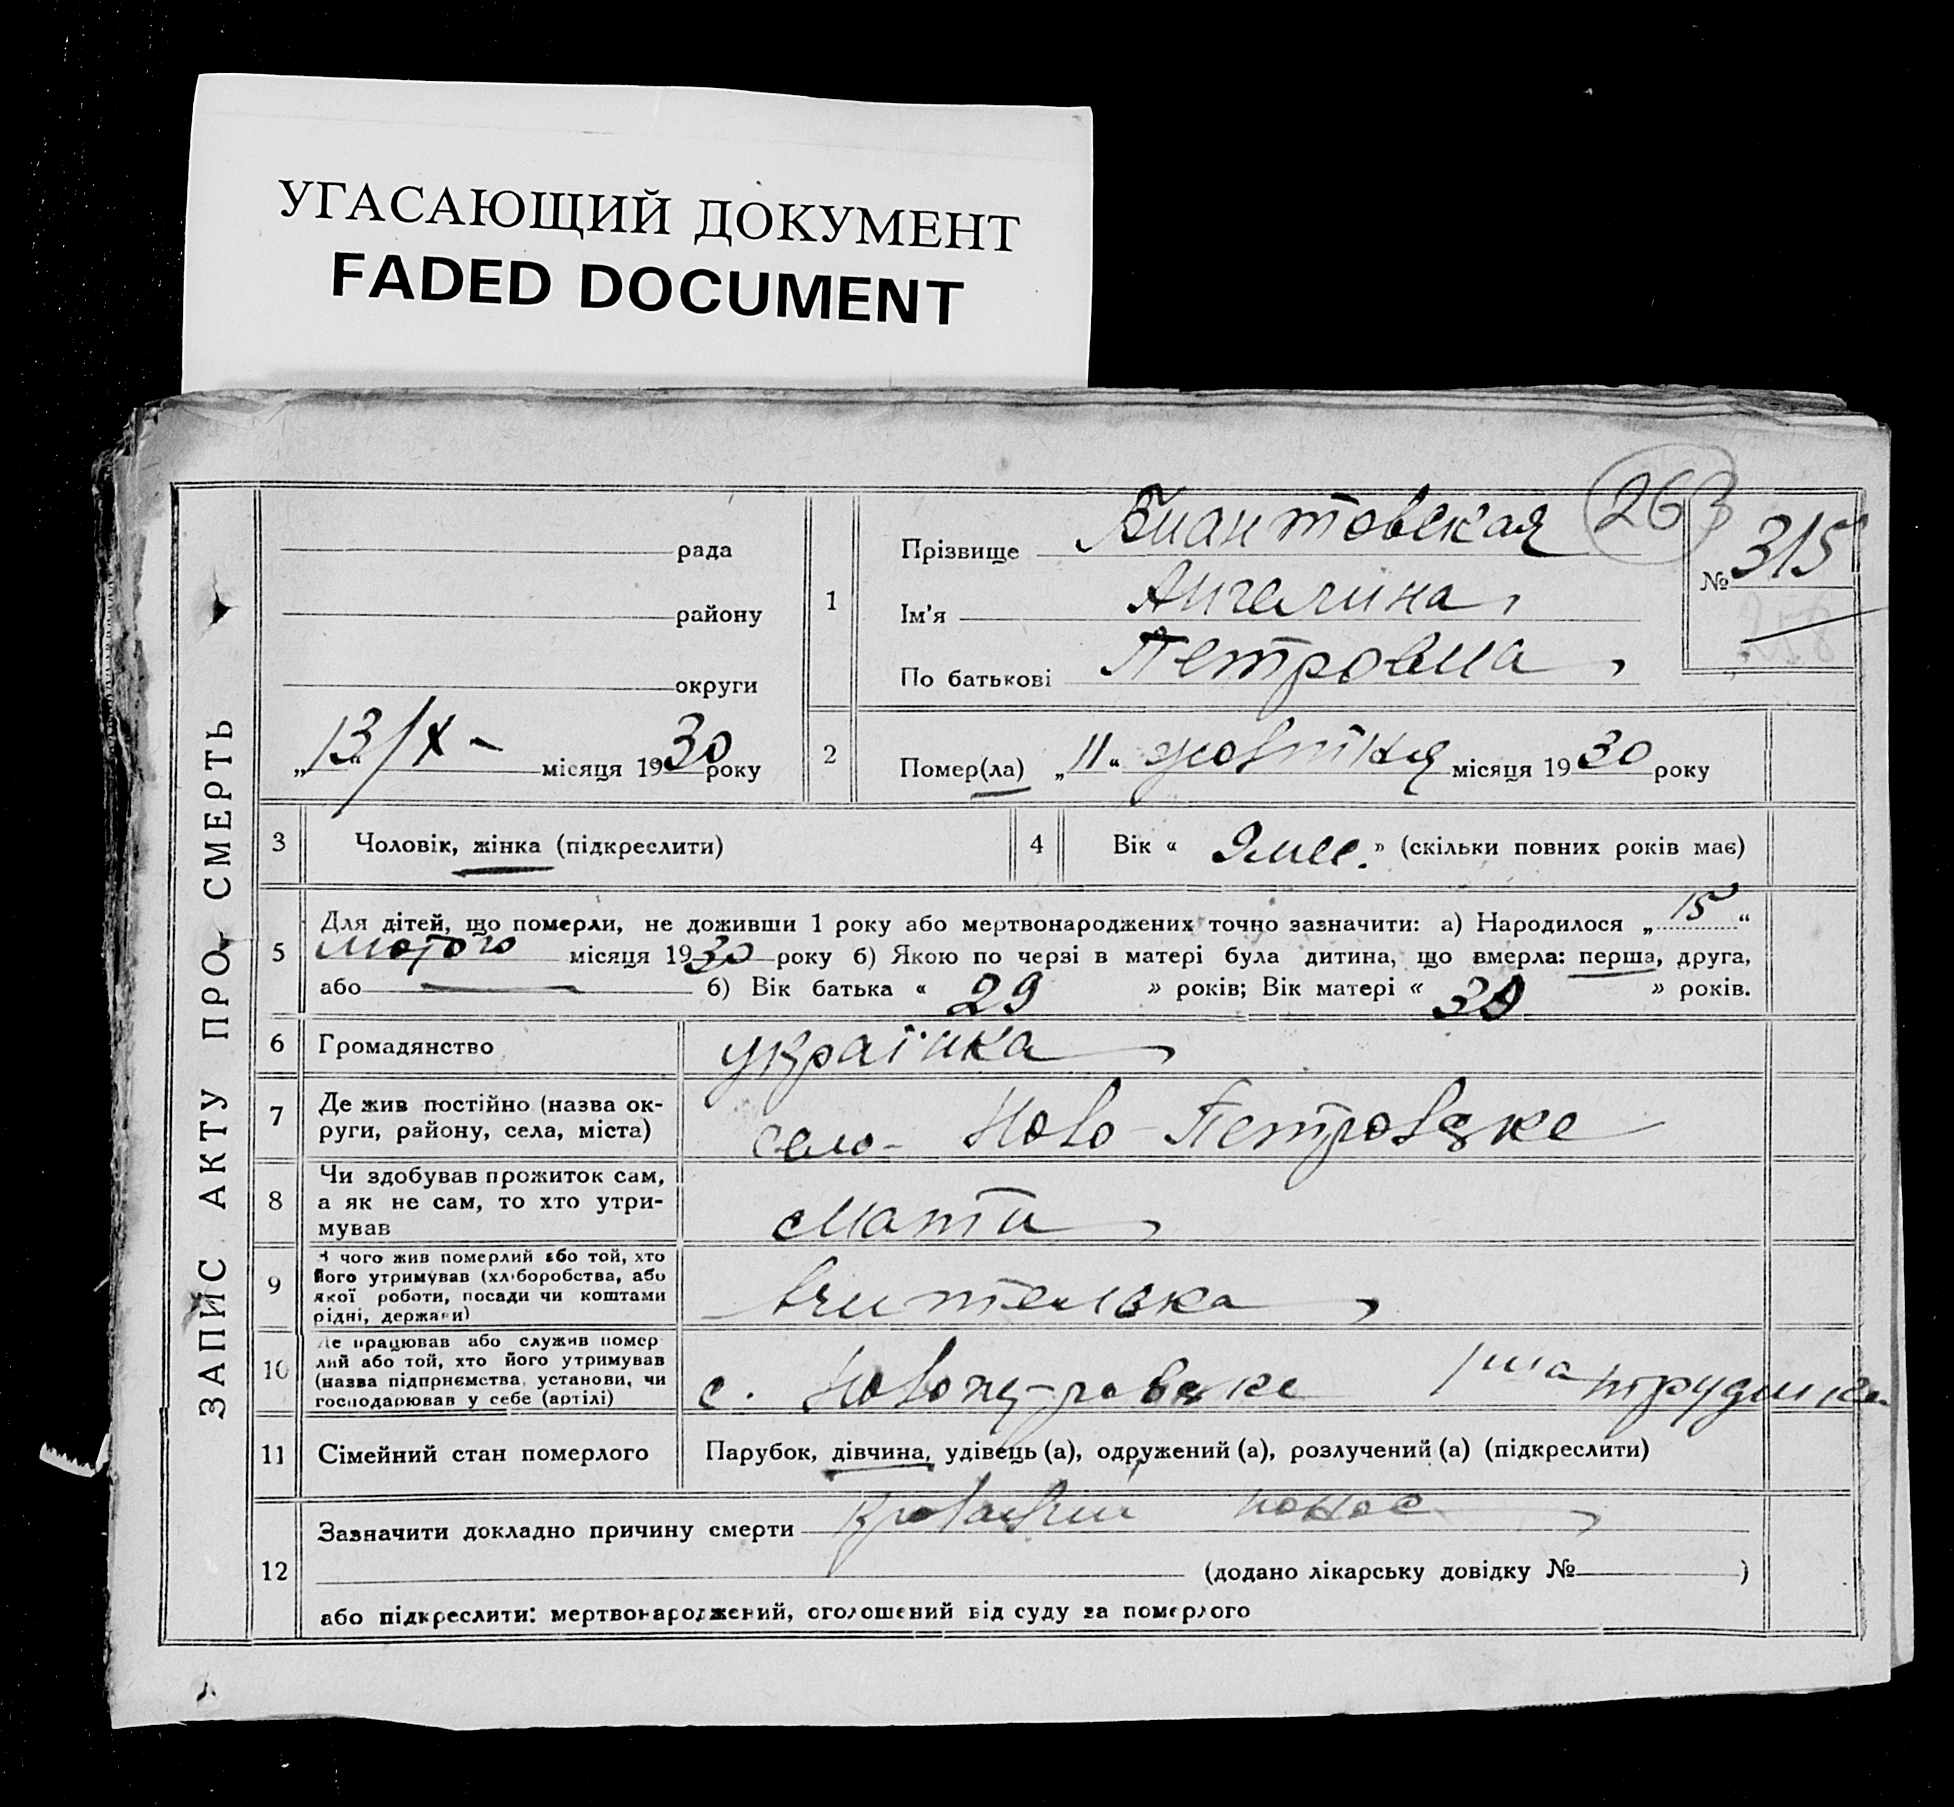 УГАСАЮЩИЙ ДОКУМЕНТ
FADED DOCUMENT
ЗАПИС АКТУ ПРО СМЕРТЬ
263
№ 315
258
рада
району
округи
„13“/X - місяця 1930 року
1
Прізвище
Ім'я Ангелина,
По батькові Петровна,
2
Помер(ла) „11“ жовтня місяця 1930 року
3
Чоловік, жінка (підкреслити)
4
Вік « 9 міс. » (скільки повних років має)
5
Для дітей, що померли, не доживши 1 року або мертвонароджених точно зазначити: а) Народилося „15“
лютого місяця 1930 року б) Якою по черзі в матері була дитина, що вмерла: перша, друга,
або — б) Вік батька « 29 » років; Вік матері « 30 » років.
6
Громадянство українка,
7
Де жив постійно (назва ок-
руги, району, села, міста)
село - Ново-Петровське
8
Чи здобував прожиток сам,
а як не сам, то хто утри-
мував
Мати,
9
З чого жив померлий або той, хто
його утримував (хліборобства, або
якої роботи, посади чи коштами
рідні, держави)
Вчителька,
10
Де працював або служив помер
лий або той, хто його утримував
(назва підприємства, установи, чи
господарював у себе (артілі)
с.
11
Сімейний стан померлого
Парубок, дівчина, удівець (а), одружений (а), розлучений (а) (підкреслити)
12
Зазначити докладно причину смерти понос,
(додано лікарську довідку № )
або підкреслити: мертвонароджений, оголошений від суду за померлого